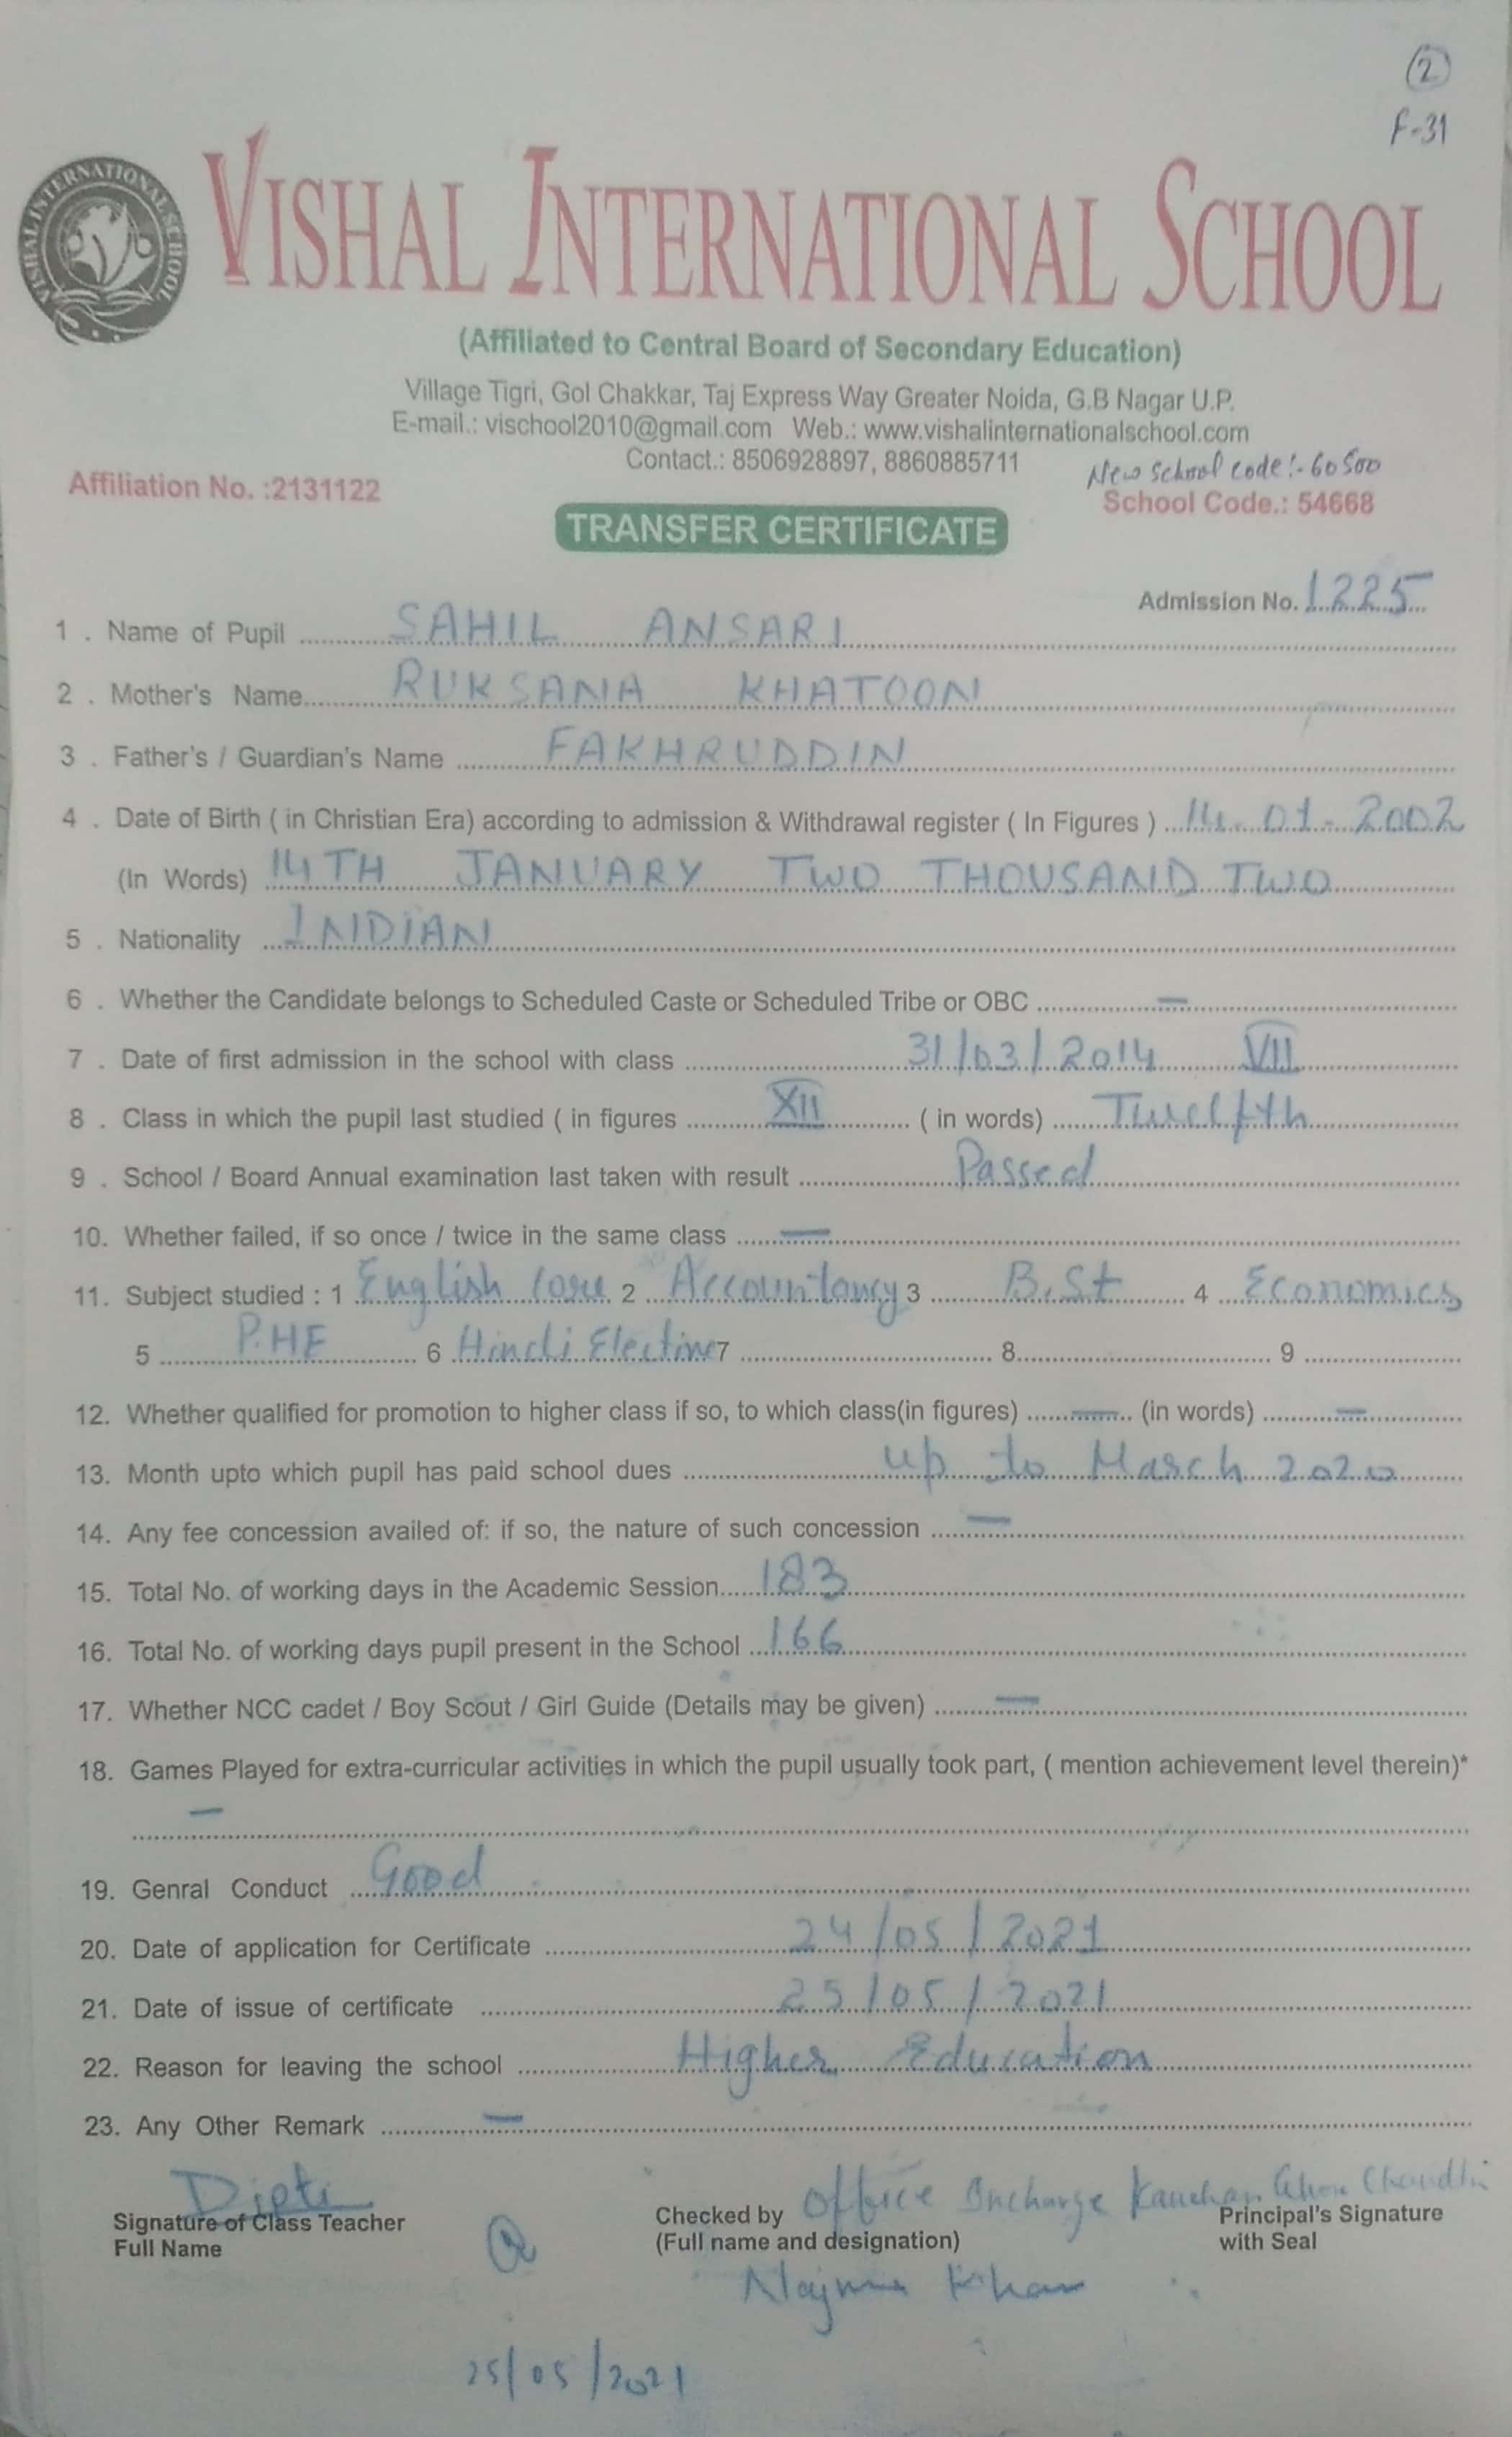 2
F-31
VISHAL INTERNATIONAL SCHOOL
VISHAL INTERNATIONAL SCHOOL
(Affiliated to Central Board of Secondary Education)
Village Tigri, Gol Chakkar, Taj Express Way Greater Noida, G.B Nagar U.P.
E-mail.: vischool2010@gmail.com Web.: www.vishalinternationalschool.com
Contact.: 8506928897, 8860885711
New School code:- 60500
Affiliation No. :2131122
School Code.: 54668
TRANSFER CERTIFICATE
Admission No. 1225
1 . Name of Pupil SAHIL ANSARI
2 . Mother's Name RUKSANA KHATOON
3 . Father's / Guardian's Name FAKHRUDDIN
4 . Date of Birth ( in Christian Era) according to admission & Withdrawal register ( In Figures ) 14-01-2002
(In Words) 14TH JANUARY TWO THOUSAND TWO
5 . Nationality INDIAN
6 . Whether the Candidate belongs to Scheduled Caste or Scheduled Tribe or OBC —
7 . Date of first admission in the school with class 31/03/2014 VII
8 . Class in which the pupil last studied ( in figures XII ( in words) Twelfth
9 . School / Board Annual examination last taken with result Passed
10. Whether failed, if so once / twice in the same class —
11. Subject studied : 1 English Core 2 Accountancy 3 B.St 4 Economics
5 P.HE 6 Hindi Elective 7 8 9
12. Whether qualified for promotion to higher class if so, to which class(in figures) — (in words) —
13. Month upto which pupil has paid school dues up to March 2020
14. Any fee concession availed of: if so, the nature of such concession —
15. Total No. of working days in the Academic Session 183
16. Total No. of working days pupil present in the School 166
17. Whether NCC cadet / Boy Scout / Girl Guide (Details may be given) —
18. Games Played for extra-curricular activities in which the pupil usually took part, ( mention achievement level therein)*
—
19. Genral Conduct Good
20. Date of application for Certificate 24/05/2021
21. Date of issue of certificate 25/05/2021
22. Reason for leaving the school Higher Education
23. Any Other Remark —
Dipti
Signature of Class Teacher
Full Name
Office Incharge
Checked by
(Full name and designation)
Najma Khan
Kanchan
Principal's Signature
with Seal
25/05/2021